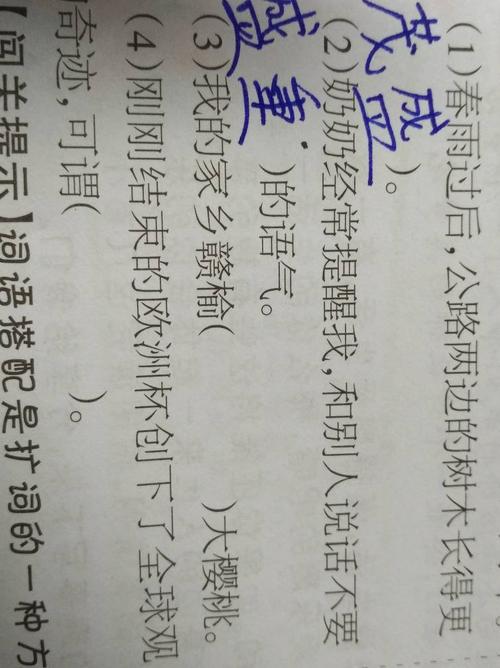 (1)春雨过后,公路两边的树木长得更
茂盛)。
(2)奶奶经常提醒我,和别人说话不要
盛重)的语气。
(3)我的家乡赣榆( )大樱桃。
(4)刚刚结束的欧洲杯创下了全球观
奇迹,可谓( )。
【闯关提示】词语搭配是扩词的一种方